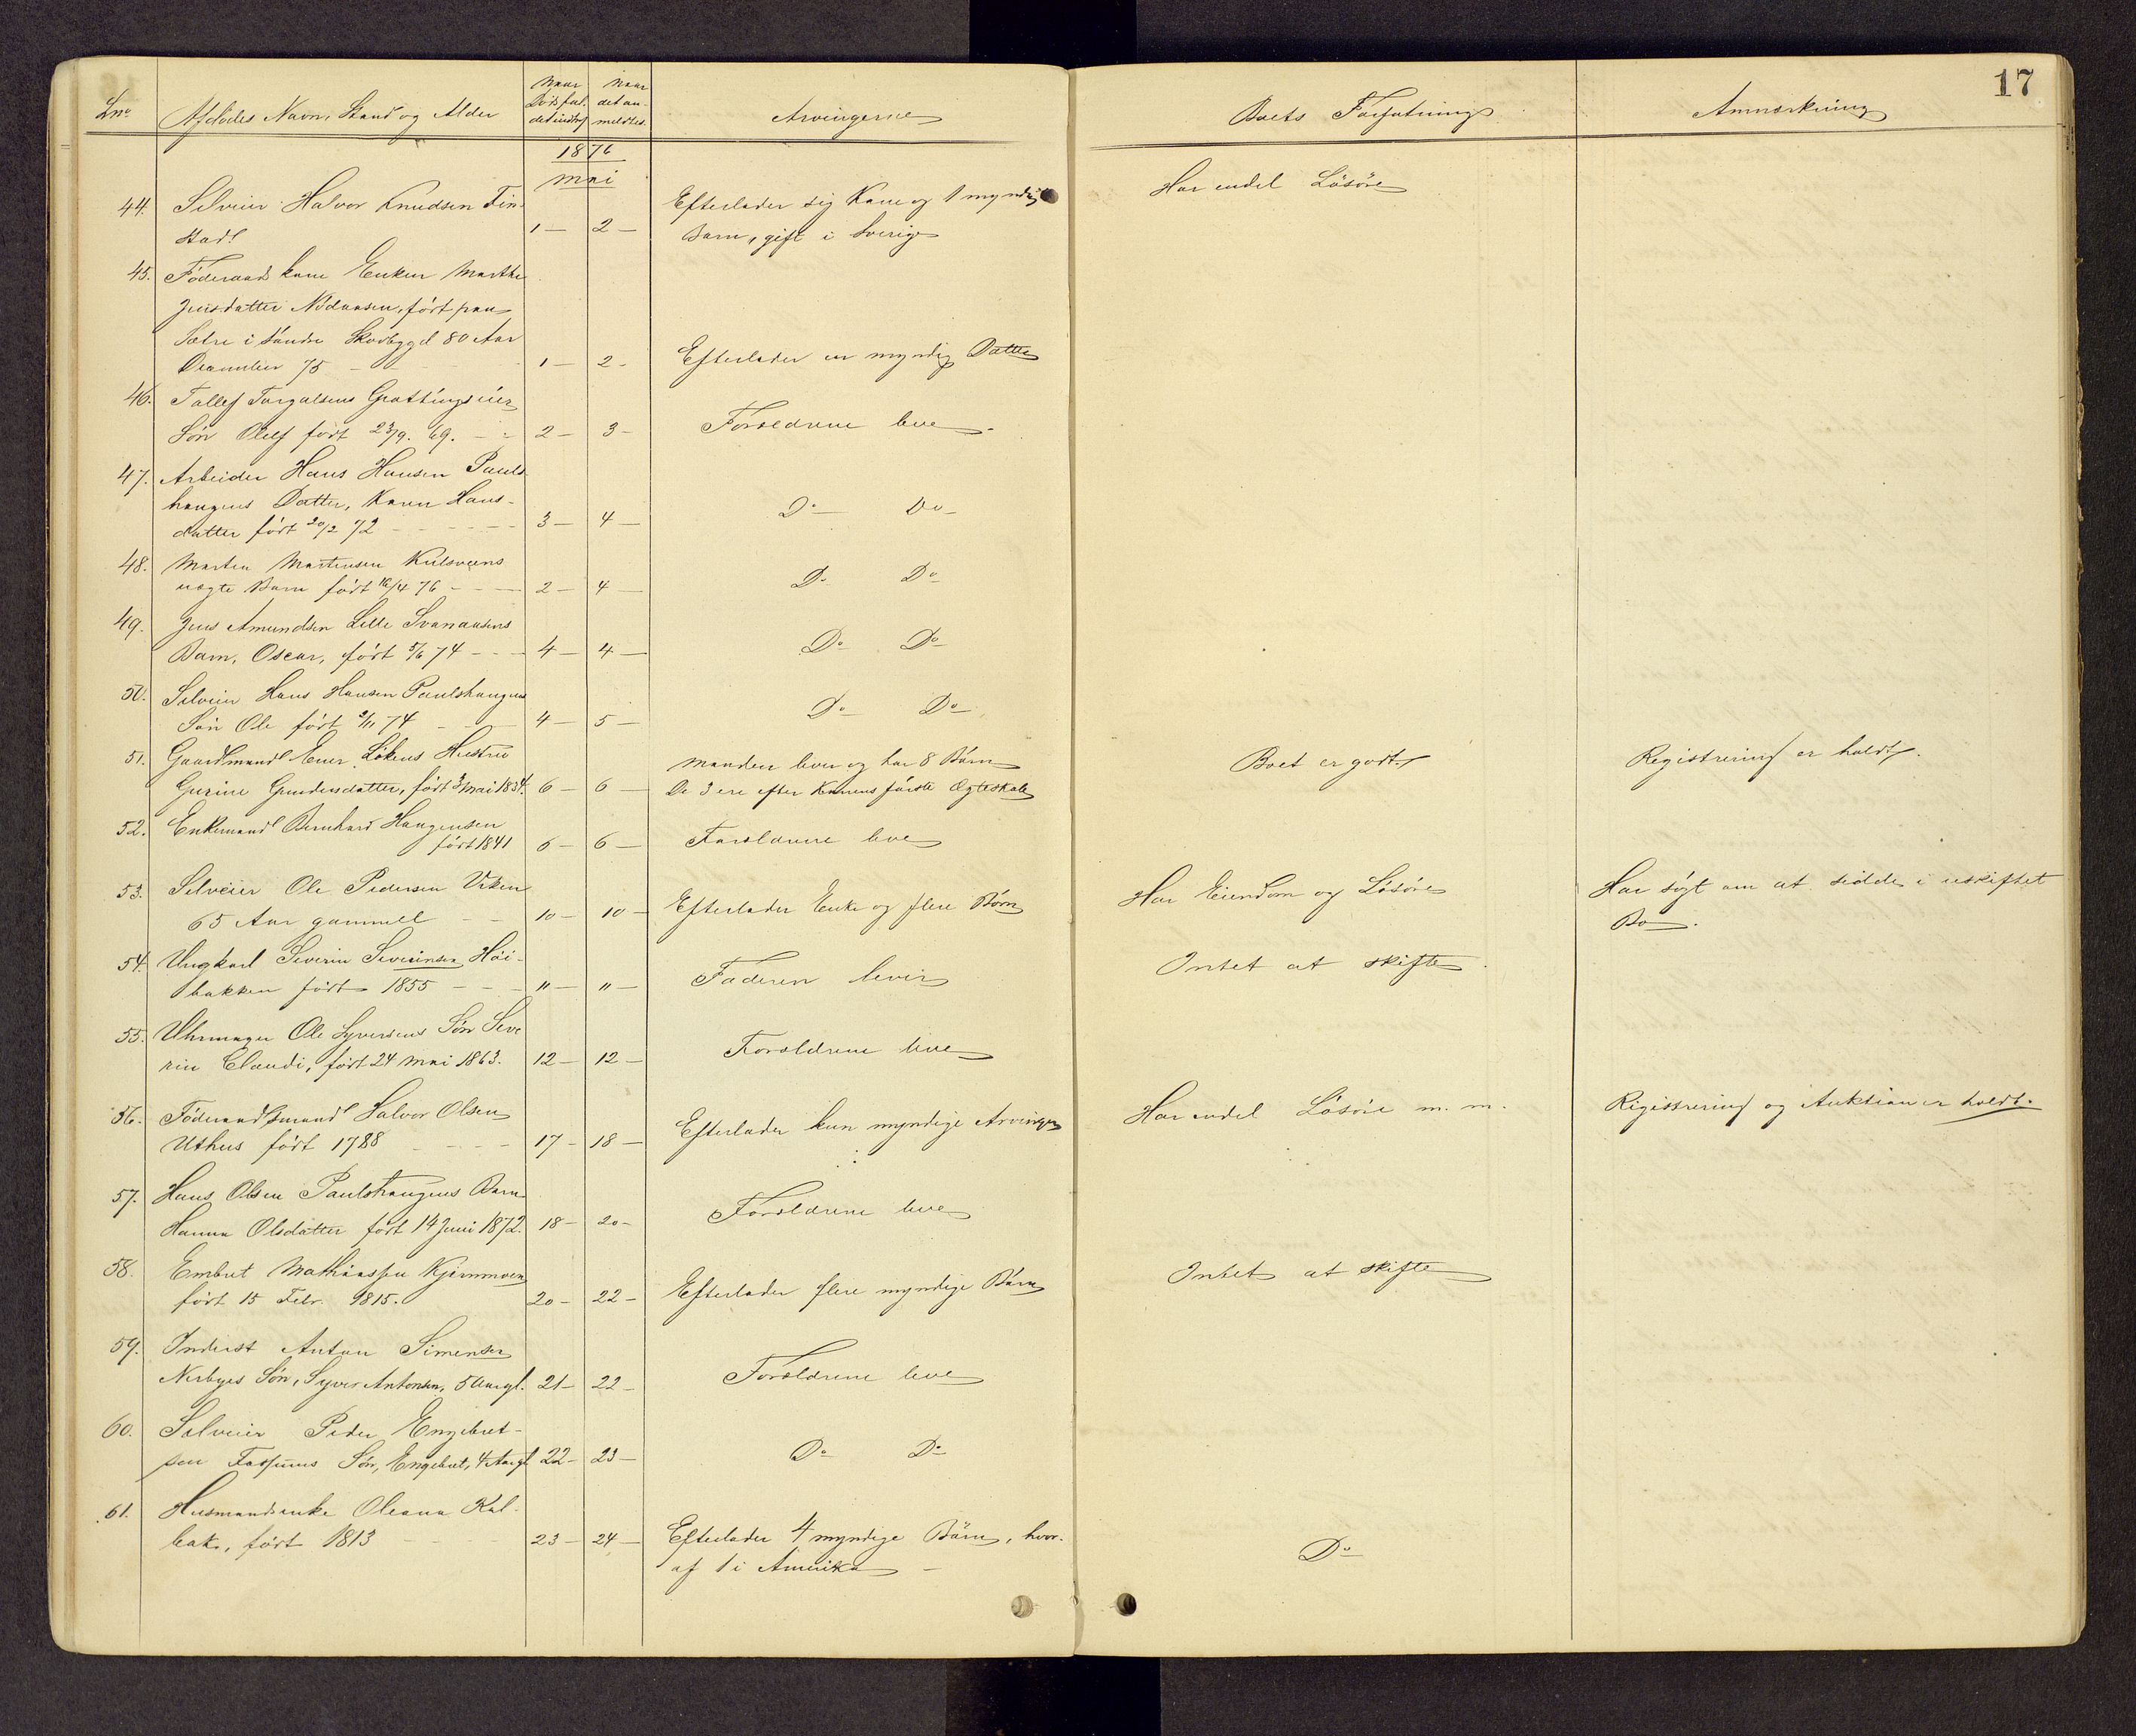 17
Lno Afdødes Navn, Stand og Alder Naar Dødsfal. det indtraf Naar det an- meldtes. Arvingerne Boets Forfatning Anmærkning
1876
Mai
44. Selveier Halvor Knudsen Fin-
stad 1 — 2 — Efterlader sig Kone og 1 myndig
Barn, gift i Sverige Har endel Løsøre
45. Føderaads kone Enken Marthe
Jensdatter Nødaasen, født paa
Sætre i Søndre Skovbygd 80 Aar
75 — 1 — 2 - Efterlader en myndig Datter
46. Tollef Torgalsens
Søn Olelf født 23/9. 69. — 2 — 3 - Forældrene leve
47. Arbeider Hans Hansen Pauls-
haugens Datter, Karen Hans-
datter født 20/2 72 — 3 — 4 — Do Do
48. Martin Martinsen Kulsveens
uægte Barn født 16/4 76 — 2 — 4 — Do Do
49. Jens Amundsen Lille Svenaasens
Barn, Oscar, født 5/6 74 — 4 — 4 — Do Do
50. Selveier Hans Hansen Paulshaugens
Søn Ole født 9/11 74 — 4 — 5 — Do Do
51. Gaardmand Ener Løkens Hustru
Gurine Gundersdatter, født 3 Mai 1834. 6 — 6 — Manden lever og har 8 Børn
De 3 ere efter Konens første Ægteskab Boet er godt. Registrering er holdt.
52. Enkemand Bernhard Haugensen
født 1841 6 — 6 — Forældrene leve
53. Selveier Ole Pedersen Viken
65 Aar gammel — 10 — 10 — Efterlader Enke og flere Børn Har Eiendom og Løsøre Har søgt om at sidde i uskiftet
Bo.
54. Ungkarl Severin Severinsen Høi-
bakken født 1855 — " — " — Faderen lever Intet at skifte.
55. Uhrmager Ole Syversens Søn Seve
rin Claudi, født 24 Mai 1863. 12 — 12 — Forældrene leve
56. Føderaadsmand Halvor Olsen
Uthus født 1788 — 17 - 18 — Efterlader kun myndige Arvinger Har endel Løsøre m. m. Registrering og Auktion er holdt.
57. Hans Olsen Paulshaugens Barn
Hanna Olsdatter født 14 Juni 1872. 18 - 20 - Forældrene leve
58. Embret Mathiassen Kjernmoen
født 15 Febr. 1815. 20 - 22 - Efterlader flere myndige Børn Intet at skifte
59. Inderst Anton Simensen
Nerbyes Søn, Syver Antonsen, 5 Aar gl. 21 - 22 - Forældrene leve
60. Selveier Peder Engebret-
sen Fossums Søn, Engebret, 4 Aar gl 22 - 23 — Do Do
61. Husmandsenke Oleana Kal-
bak, født 1813 — 23 - 24 — Efterlader 4 myndige Børn, hvor-
af 1 i Amerika — Do